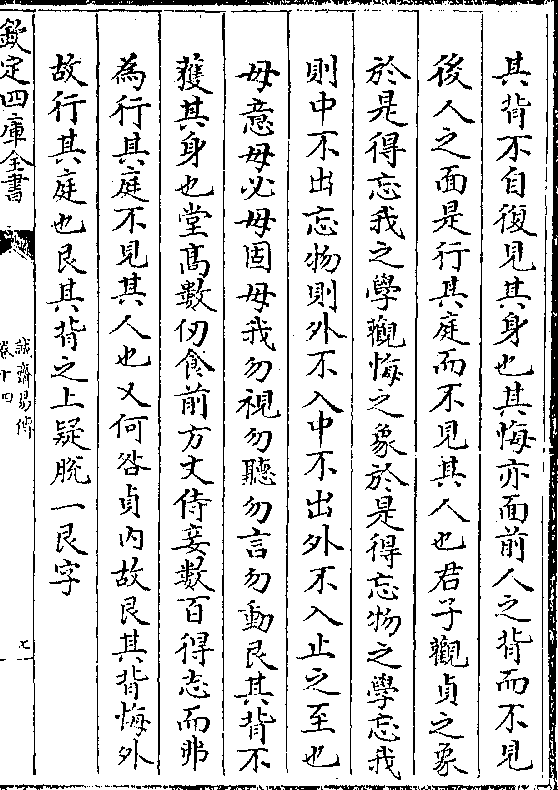 其背不自復見其身也其悔亦面前人之背而不見
後人之面是行其庭而不見其人也君子觀貞之象
於是得忘我之學觀悔之象於是得忘物之學忘我
則中不出忘物則外不入中不出外不入止之至也
毋意毋必毋固毋我勿視勿聽勿言勿動艮其背不
獲其身也堂高數仞食前方丈侍妾數百得志而弗
為行其庭不見其人也又何咎貞內故艮其背悔外
故行其庭也艮其背之上疑脫一艮字
欽定四庫全書
誠齋易傳
卷十四
七